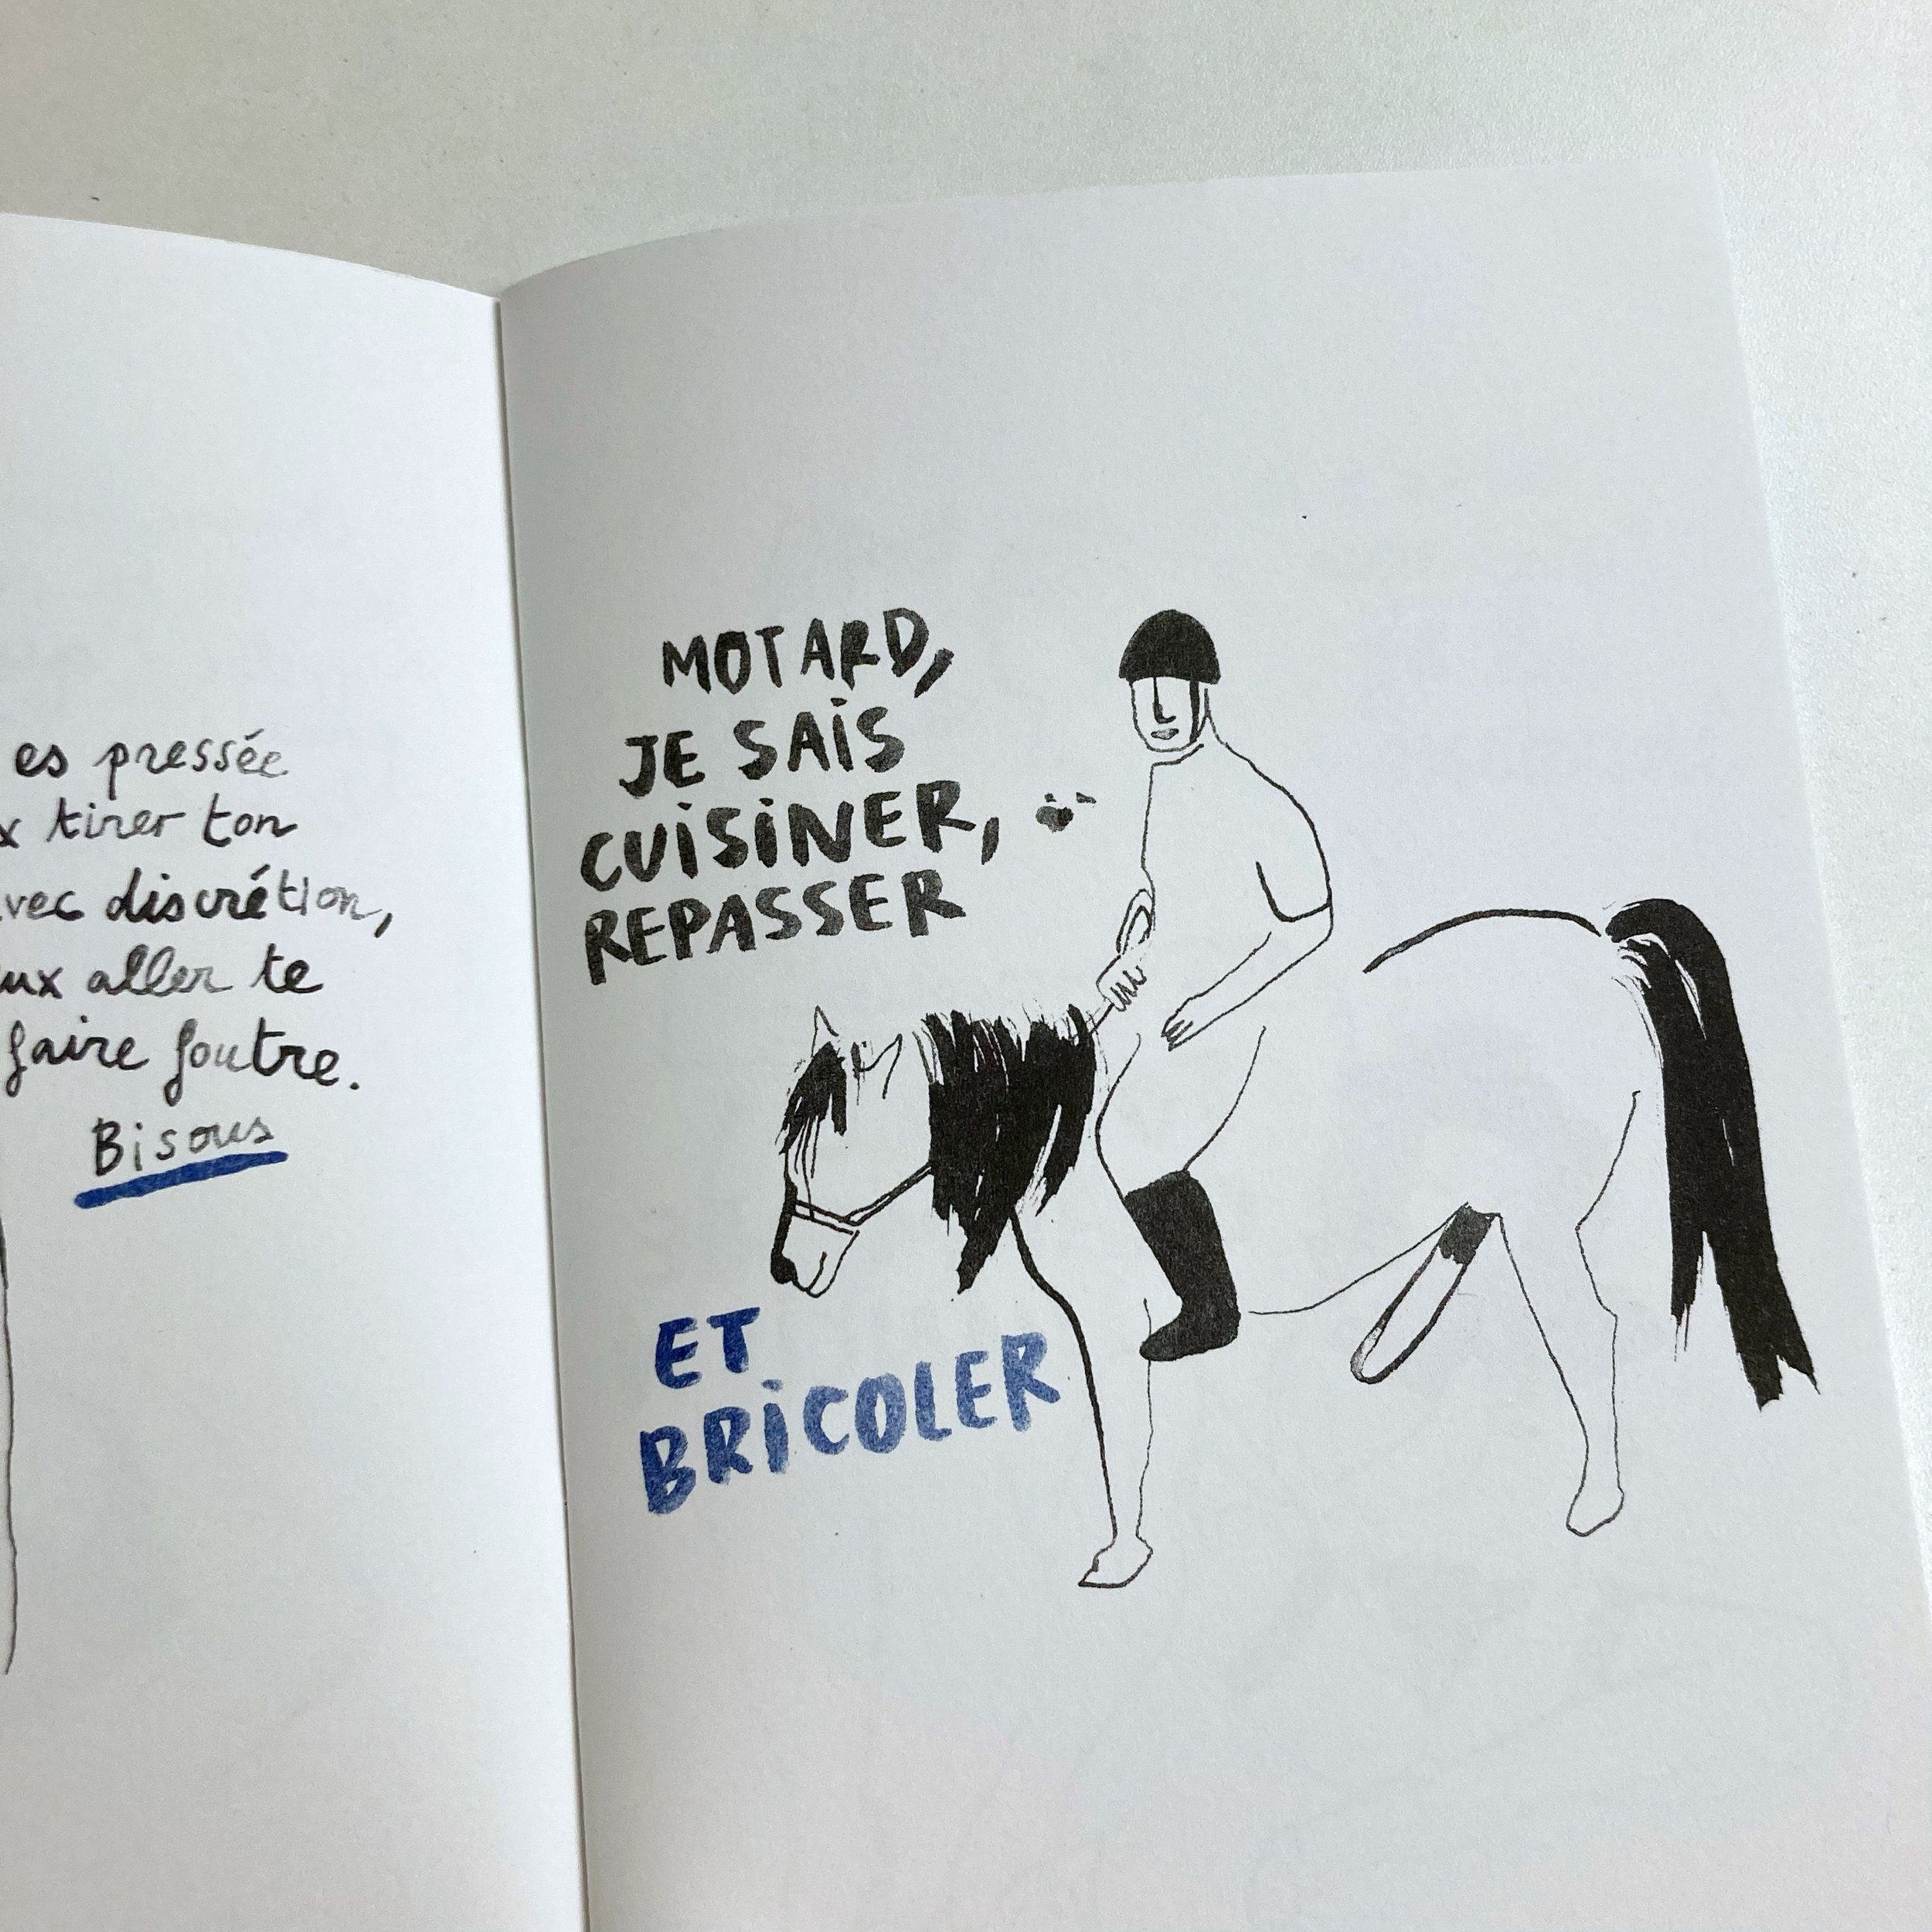 es pressée
tirer ton
avec discrétion,
aller te
faire foutre.
Bisous
MOTARD,
JE SAIS
CUISINER,
REPASSER
ET
BRICOLER